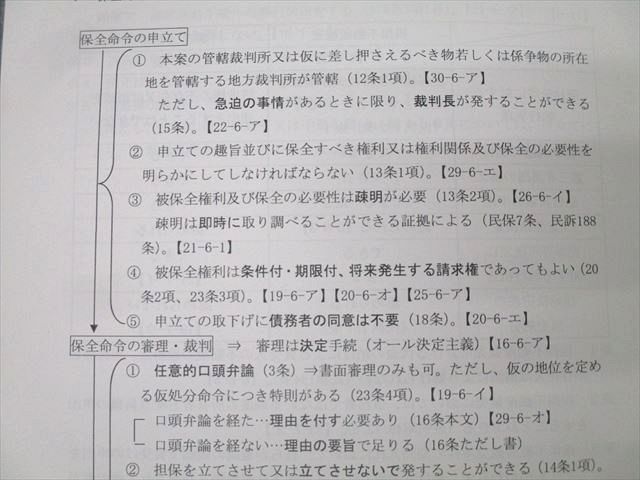 保全命令の申立て
① 本案の管轄裁判所又は仮に差し押さえるべき物若しくは係争物の所在
地を管轄する地方裁判所が管轄（12条1項）。【30-6-ア】
ただし、急迫の事情があるときに限り、裁判長が発することができる
（15条）。【22-6-ア】
② 申立ての趣旨並びに保全すべき権利又は権利関係及び保全の必要性を
明らかにしてしなければならない（13条1項）。【29-6-エ】
③ 被保全権利及び保全の必要性は疎明が必要（13条2項）。【26-6-イ】
疎明は即時に取り調べることができる証拠による（民保7条、民訴188
条）。【21-6-1】
④ 被保全権利は条件付・期限付、将来発生する請求権であってもよい（20
条2項、23条3項）。【19-6-ア】【20-6-オ】【25-6-ア】
⑤ 申立ての取下げに債務者の同意は不要（18条）。【20-6-エ】
保全命令の審理・裁判 ⇒ 審理は決定手続（オール決定主義）【16-6-ア】
① 任意的口頭弁論（3条）⇒書面審理のみも可。ただし、仮の地位を定め
る仮処分命令につき特則がある（23条4項）。【19-6-イ】
口頭弁論を経た…理由を付す必要あり（16条本文）【29-6-オ】
口頭弁論を経ない…理由の要旨で足りる（16条ただし書）
② 担保を立てさせて又は立てさせないで発することができる（14条1項）。